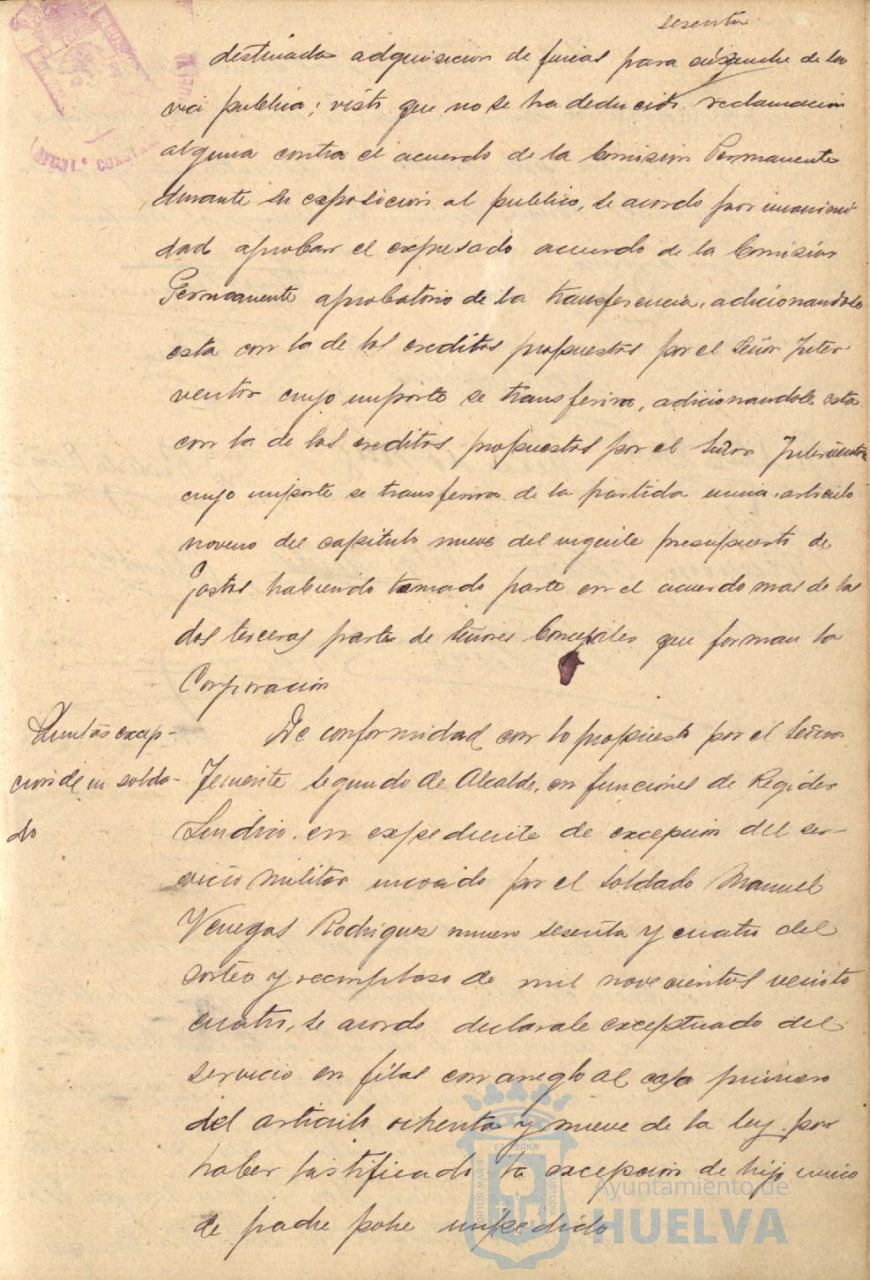 sesenta
destinada adquisicion de fincas para ensanche de la
via publica; visto que no se ha deducido reclamacion
alguna contra el acuerdo de la Comision Permanente
durante su exposicion al publico, se acordo por unanimi
dad aprobar el expresado acuerdo de la Comision
Permanente aprobatorio de la transferencia, adicionandole
esta con la de los creditos propuestos por el Señor Inter-
ventor cuyo importe se transferira, adicionandole esta
con la de los creditos propuestos por el Señor Interventor
cuyo importe se transferira de la partida unica articulo
noveno del capitulo nueve del vigente presupuesto de
Gastos habiendo tomado parte en el acuerdo mas de las
dos terceras partes de Señores Concejales que forman la
Corporacion
excep-
cion de un solda-
do
De conformidad con lo propuesto por el Señor
Teniente Segundo de Alcalde, en funciones de Regidor
Sindico, en expediente de excepcion del ser-
vicio militar incoado por el soldado Manuel
Venegas Rodriguez numero sesenta y cuatro del
sorteo y reemplazo de mil novecientos veinte
cuatro, se acordo declarale exceptuado del
servicio en filas con areglo al caso primero
del articulo ochenta y nueve de la ley por
haber justificado la excepcion de hijo unico
de padre pobre impedido
Ayuntamiento de
HUELVA